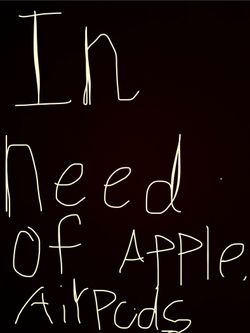 In
need
Of Apple.
AirPods